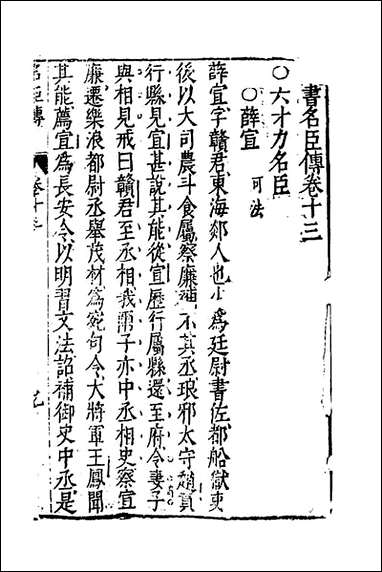 書名臣傳卷十三
○六才力名臣
○薛宣 可法
薛宣字贛君東海郯人也少爲廷尉書佐都船獄吏
後以大司農斗食屬察廉補不其丞琅邪太守趙貢
行縣見宣甚說其能從宣歷行屬縣還至府令妻子
與相見戒曰贛君至丞相我兩子亦中丞相史察宣
廉遷樂浪都尉丞舉茂材爲宛句令大將軍王鳳聞
其能薦宣爲長安令以明習文法詔補御史中丞是
名臣傳
卷十三